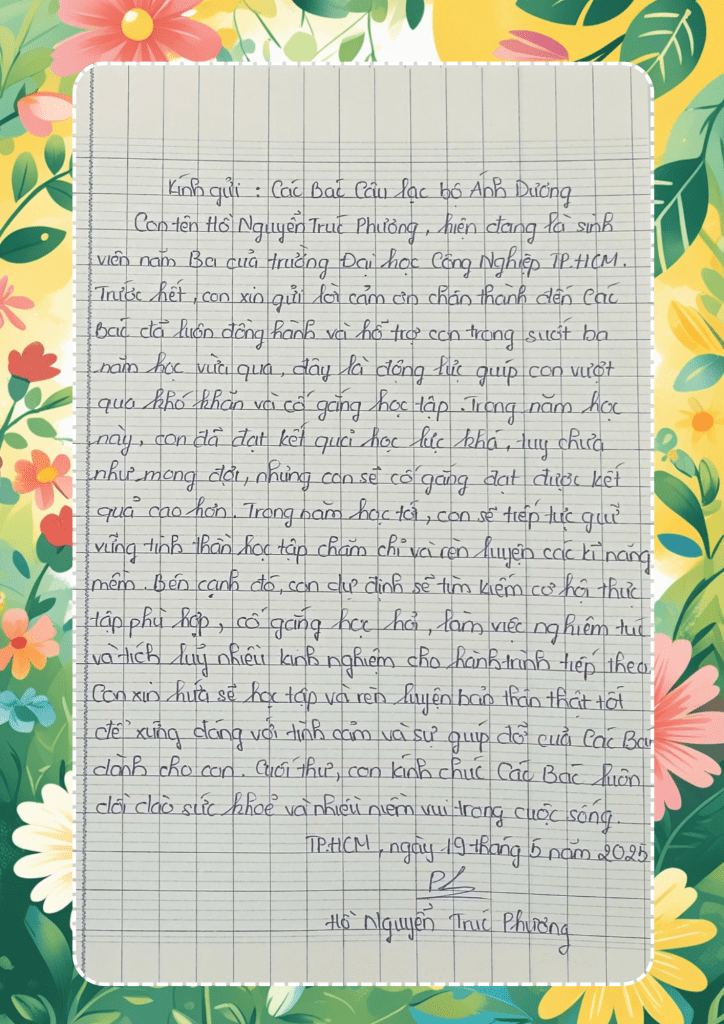 Kính gửi : Các Bác Câu lạc bộ Ánh Dương
Con tên Hồ Nguyễn Trúc Phương, hiện đang là sinh
viên năm Ba của trường Đại học Công Nghiệp TP.HCM.
Trước hết, con xin gửi lời cảm ơn chân thành đến Các
Bác đã luôn đồng hành và hỗ trợ con trong suốt ba
năm học vừa qua, đây là động lực giúp con vượt
qua khó khăn và cố gắng học tập. Trong năm học
này, con đã đạt kết quả học lực khá, tuy chưa
như mong đợi, nhưng con sẽ cố gắng đạt được kết
quả cao hơn. Trong năm học tới, con sẽ tiếp tục giữ
vững tinh thần học tập chăm chỉ và rèn luyện các kĩ năng
mềm. Bên cạnh đó, con dự định sẽ tìm kiếm cơ hội thực
tập phù hợp, cố gắng học hỏi, làm việc nghiêm túc
và tích luỹ nhiều kinh nghiệm cho hành trình tiếp theo.
Con xin hứa sẽ học tập và rèn luyện bản thân thật tốt
để xứng đáng với tình cảm và sự giúp đỡ của Các Bác
dành cho con. Cuối thư, con kính chúc Các Bác luôn
dồi dào sức khoẻ và nhiều niềm vui trong cuộc sống.
TP.HCM, ngày 19 tháng 5 năm 2025
Hồ Nguyễn Trúc Phương